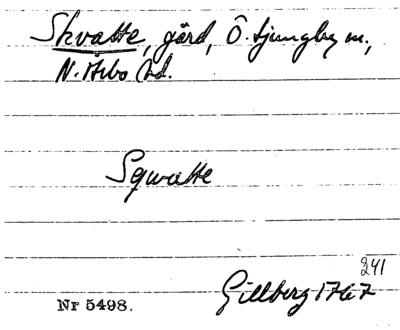 Skvatte, gård, Ö. Ljungby sn.,
N. Åsbo hd.
Sqwatte
241
Gillberg 1767
Nr 5498.